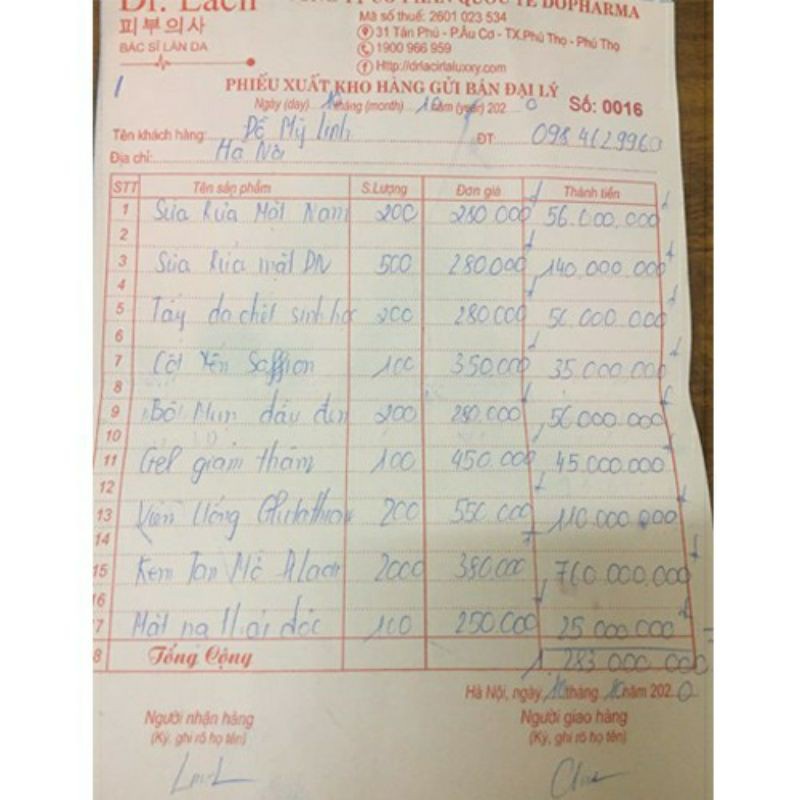 Dr. Lacir
CÔNG TY CỔ PHẦN QUỐC TẾ DOPHARMA
피부의사
BÁC SĨ LÀN DA
Mã số thuế: 2601 023 534
31 Tân Phú - P.Âu Cơ - TX.Phú Thọ - Phú Thọ
1900 966 959
Http://drlacirlaluxry.com
PHIẾU XUẤT KHO HÀNG GỬI BÁN ĐẠI LÝ
Ngày (day) tháng (month) 10 năm (year) 2020 Số: 0016
Tên khách hàng: Đỗ Mỹ Linh ĐT 0984629960
Địa chỉ: Hà Nội
STT Tên sản phẩm S.Lượng Đơn giá Thành tiền
1 Sữa Rửa Mặt Nam 200 280.000đ 56.000.000đ
2
3 Sữa Rửa mặt DN 500 280.000đ 140.000.000đ
4
5 Tẩy da chết sinh học 200 280.000đ 56.000.000đ
6
7 Yến Saffron 100 350.000đ 35.000.000đ
8
9 Bộ Mụn đầu đen 200 280.000đ 56.000.000đ
10
11 Gel giảm thâm 100 450.000đ 45.000.000đ
12
13 Viên Uống Glutathione 200 550.000đ 110.000.000đ
14
15 Kem Tan Mỡ 2000 380.000đ 760.000.000đ
16
17 Mặt nạ thải độc 100 250.000đ 25.000.000đ
18 Tổng Cộng 1.283.000.000
Hà Nội, ngày tháng 10 năm 2020
Người nhận hàng Người giao hàng
(Ký, ghi rõ họ tên) (Ký, ghi rõ họ tên)